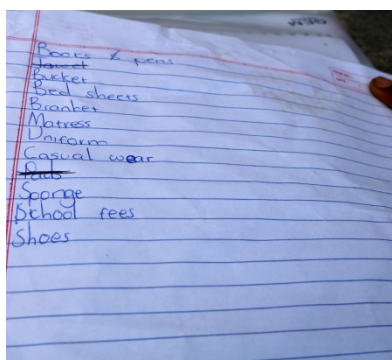 Books & pens
Jowel
Bucket
Bed sheets
Branket
Matress
Uniform
Casual wear
Pads
Sponge
School fees
Shoes